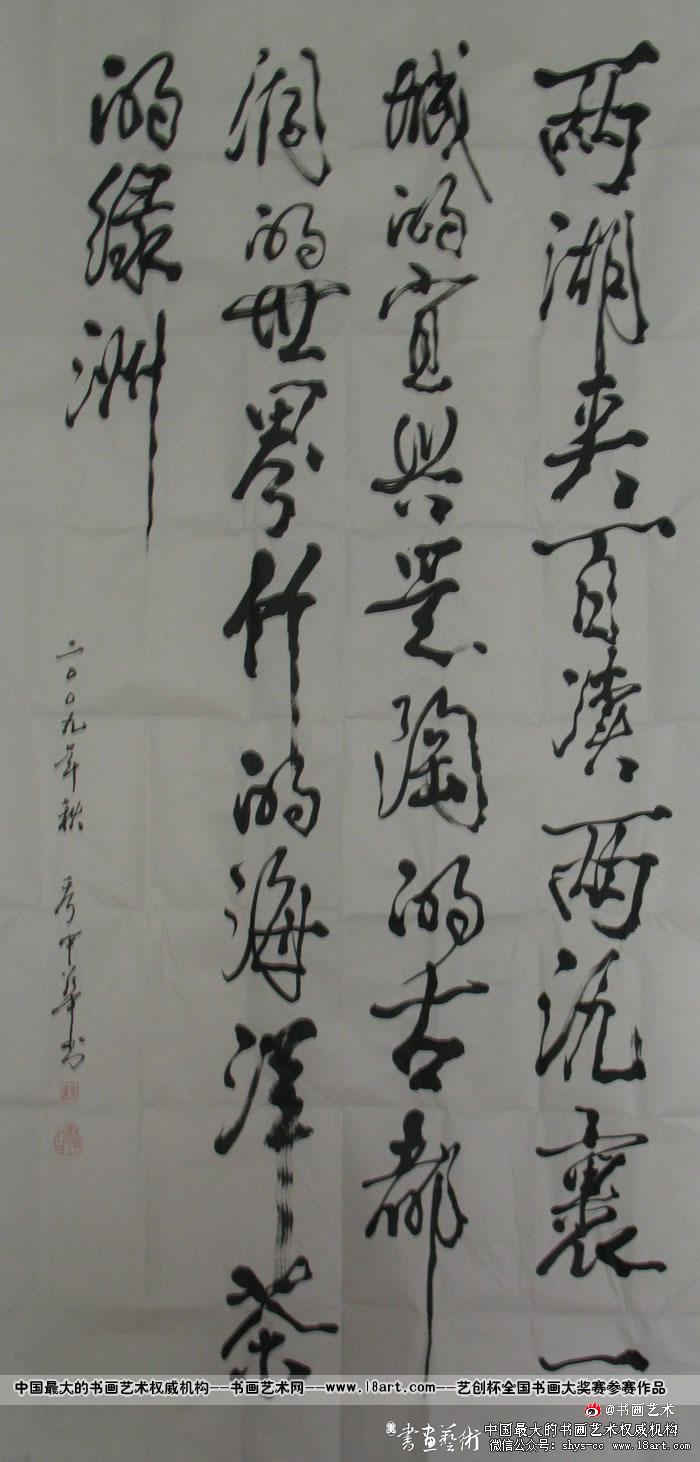 两湖夹百渎两氿裹一
城的宜兴是陶的古都
洞的世界竹的海洋茶
的绿洲
二〇〇九年秋 书
中国最大的书画艺术权威机构——书画艺术网——www.18art.com——艺创杯全国书画大奖赛参赛作品
@书画艺术
書画藝術
中国最大的书画艺术权威机构
微信公众号：shys-cc www.18art.com